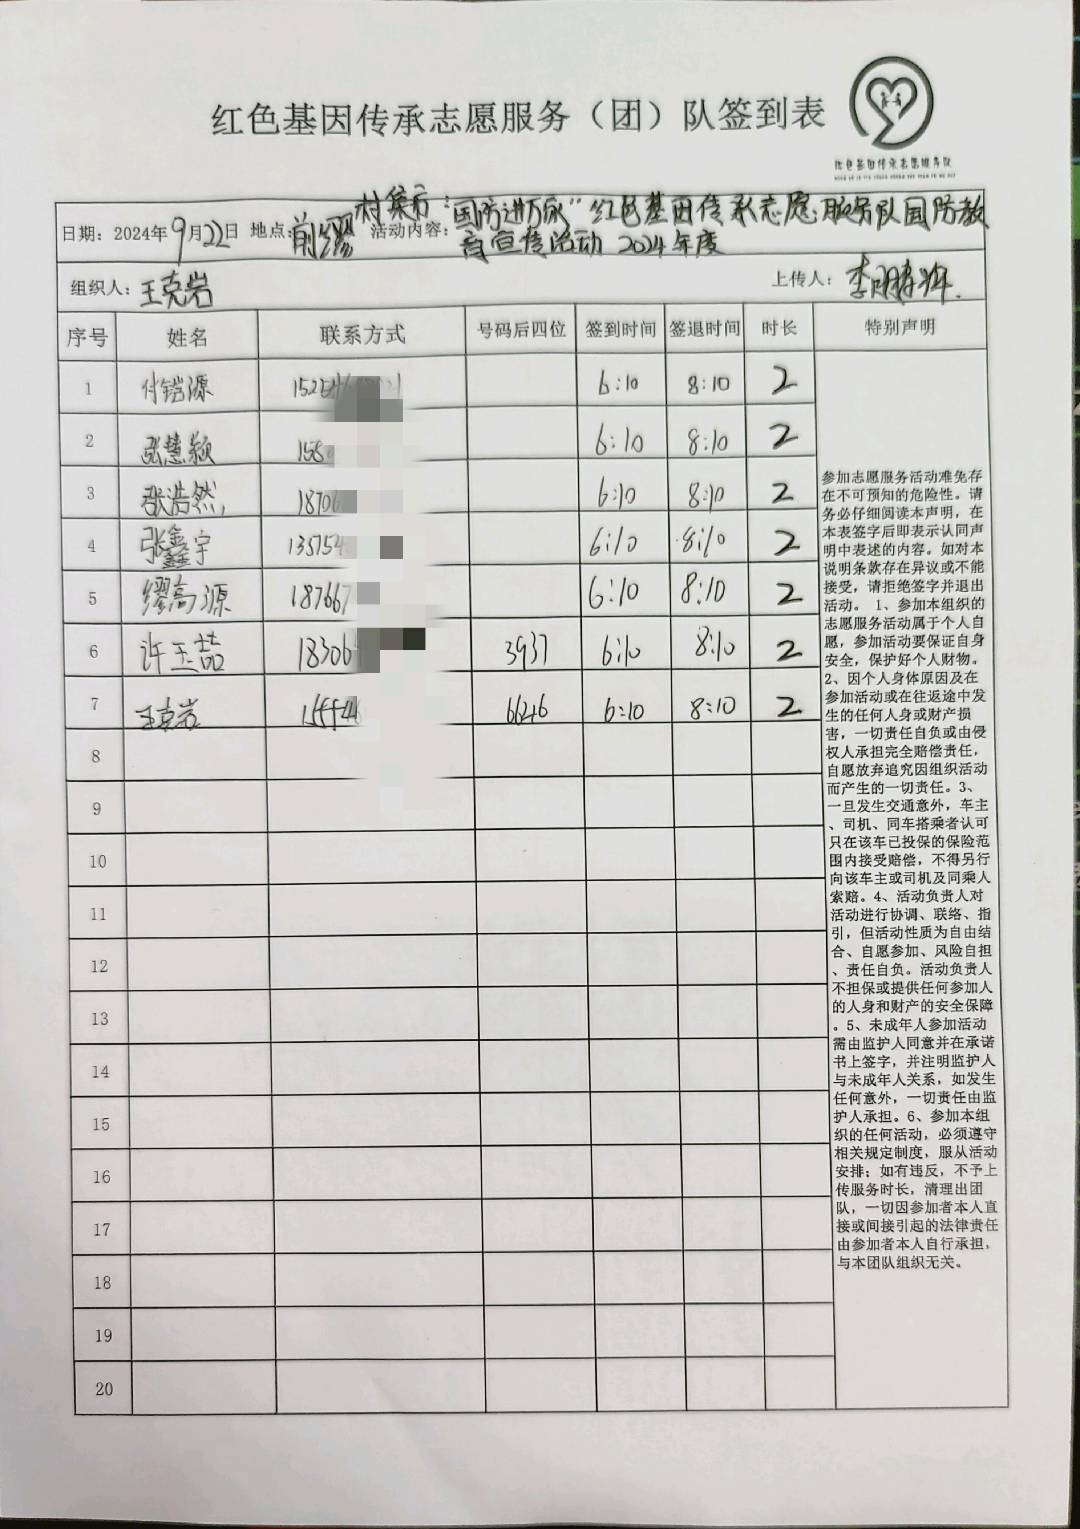 红色基因传承志愿服务（团）队签到表
红色基因传承志愿服务队
日期：2024年9月22日 地点：前缪村集市 活动内容：“国防进万家”红色基因传承志愿服务队国防教
育宣传活动 2024年度
组织人：王克岩 上传人：李鹏辉
序号 姓名 联系方式 号码后四位 签到时间 签退时间 时长 特别声明
1 付铠源 6:10 8:10 2
2 张慧颖 6:10 8:10 2
3 张浩然 6:10 8:10 2
4 张鑫宇 6:10 8:10 2
5 缪高源 6:10 8:10 2
6 许玉喆 3937 6:10 8:10 2
7 王克岩 6646 6:10 8:10 2
8
9
10
11
12
13
14
15
16
17
18
19
20
参加志愿服务活动难免存
在不可预知的危险性。请
务必仔细阅读本声明，在
本表签字后即表示认同声
明中表述的内容。如对本
说明条款存在异议或不能
接受，请拒绝签字并退出
活动。1、参加本组织的
志愿服务活动属于个人自
愿，参加活动要保证自身
安全，保护好个人财物。
2、因个人身体原因及在
参加活动或在往返途中发
生的任何人身或财产损
害，一切责任自负或由侵
权人承担完全赔偿责任，
自愿放弃追究因组织活动
而产生的一切责任。3、
一旦发生交通意外，车主
、司机、同车搭乘者认可
只在该车已投保的保险范
围内接受赔偿，不得另行
向该车主或司机及同乘人
索赔。4、活动负责人对
活动进行协调、联络、指
引，但活动性质为自由结
合、自愿参加、风险自担
、责任自负。活动负责人
不担保或提供任何参加人
的人身和财产的安全保障
。5、未成年人参加活动
需由监护人同意并在承诺
书上签字，并注明监护人
与未成年人关系，如发生
任何意外，一切责任由监
护人承担。6、参加本组
织的任何活动，必须遵守
相关规定制度，服从活动
安排；如有违反，不予上
传服务时长，清理出团
队，一切因参加者本人直
接或间接引起的法律责任
由参加者本人自行承担，
与本团队组织无关。